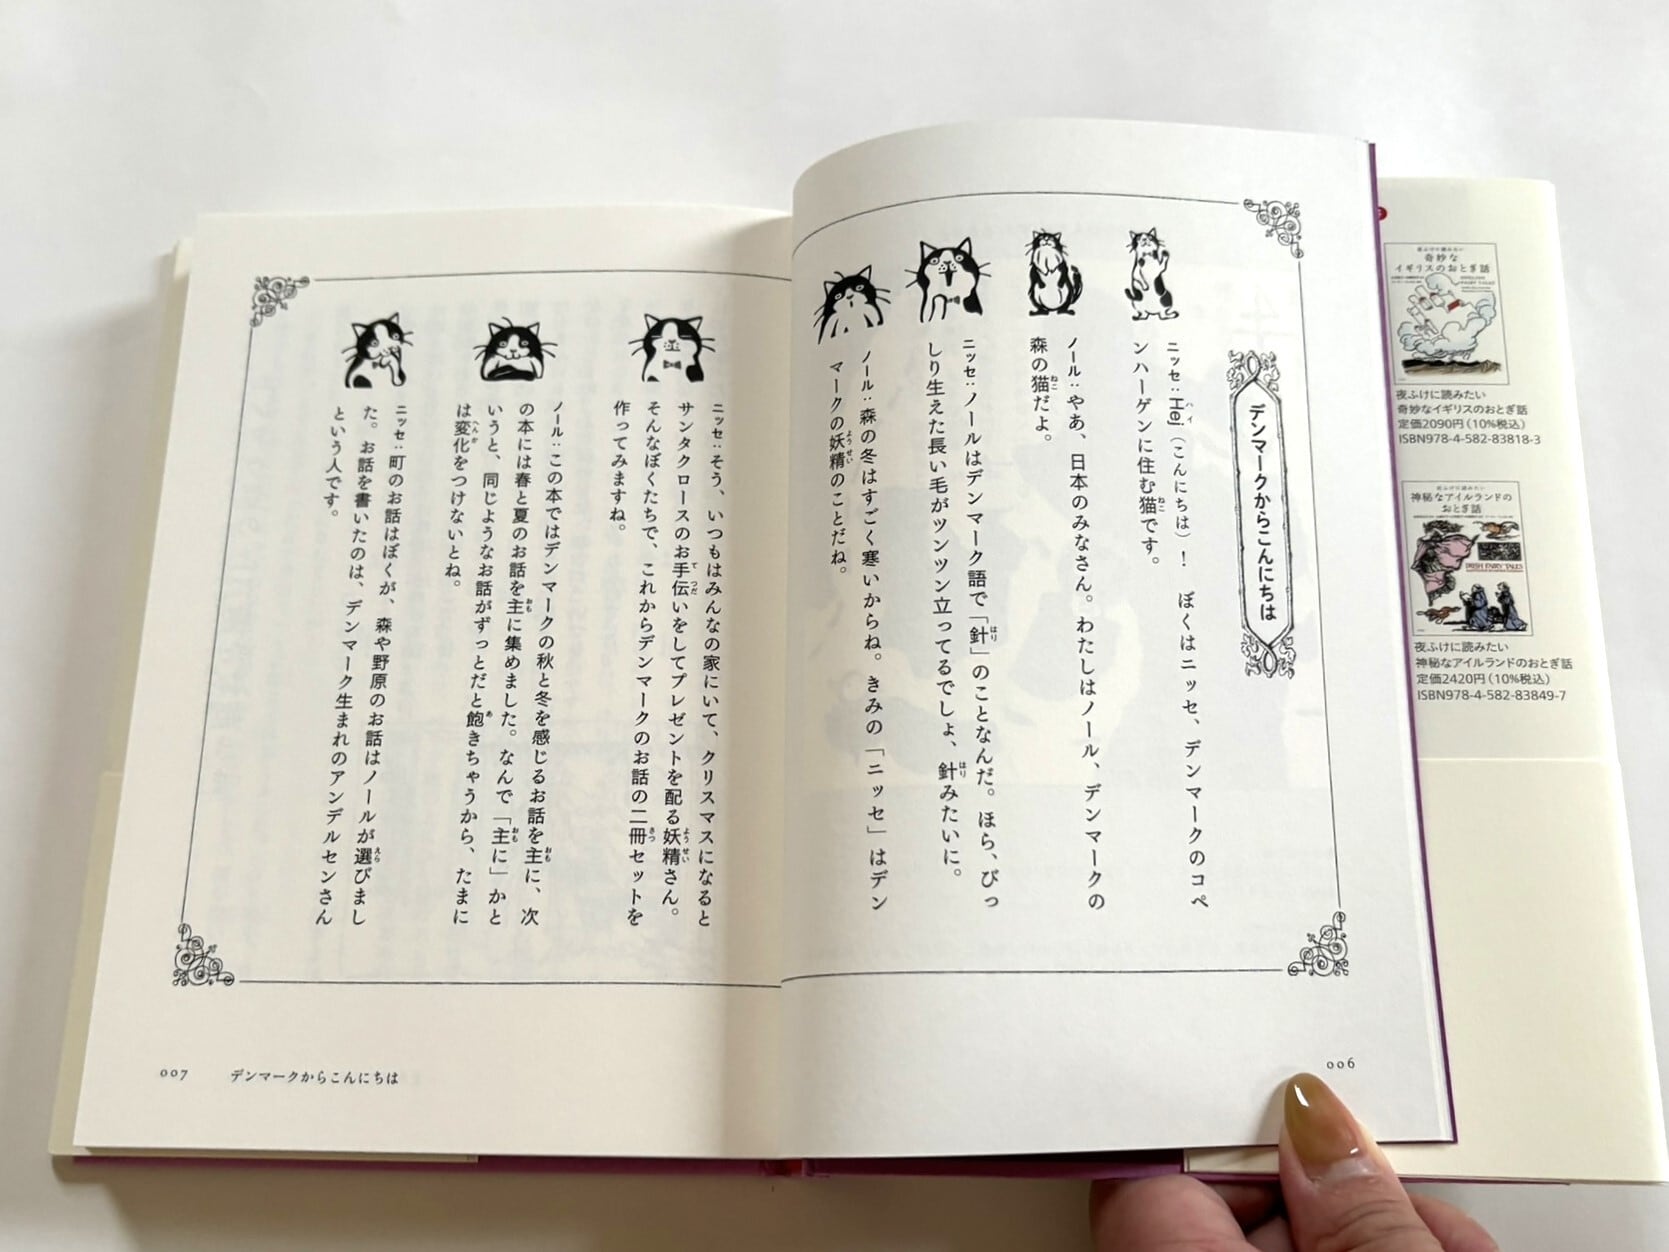 デンマークからこんにちは
ニッセ：Hej（こんにちは）！　ぼくはニッセ、デンマークのコペ
ンハーゲンに住む猫です。
ノール：やあ、日本のみなさん。わたしはノール、デンマークの
森の猫だよ。
ニッセ：ノールはデンマーク語で「針」のことなんだ。ほら、びっ
しり生えた長い毛がツンツン立ってるでしょ、針みたいに。
ノール：森の冬はすごく寒いからね。きみの「ニッセ」はデン
マークの妖精のことだね。
006
ニッセ：そう、いつもはみんなの家にいて、クリスマスになると
サンタクロースのお手伝いをしてプレゼントを配る妖精さん。
そんなぼくたちで、これからデンマークのお話の二冊セットを
作ってみますね。
ノール：この本ではデンマークの秋と冬を感じるお話を主に、次
の本には春と夏のお話を主に集めました。なんで「主に」かと
いうと、同じようなお話がずっとだと飽きちゃうから、たまに
は変化をつけないとね。
ニッセ：町のお話はぼくが、森や野原のお話はノールが選びまし
た。お話を書いたのは、デンマーク生まれのアンデルセンさん
という人です。
007　デンマークからこんにちは
夜ふけに読みたい
奇妙な
イギリスのおとぎ話
夜ふけに読みたい
奇妙なイギリスのおとぎ話
定価2090円（10%税込）
ISBN978-4-582-83818-3
夜ふけに読みたい
神秘なアイルランドの
おとぎ話
IRISH FAIRY TALES
夜ふけに読みたい
神秘なアイルランドのおとぎ話
定価2420円（10%税込）
ISBN978-4-582-83849-7